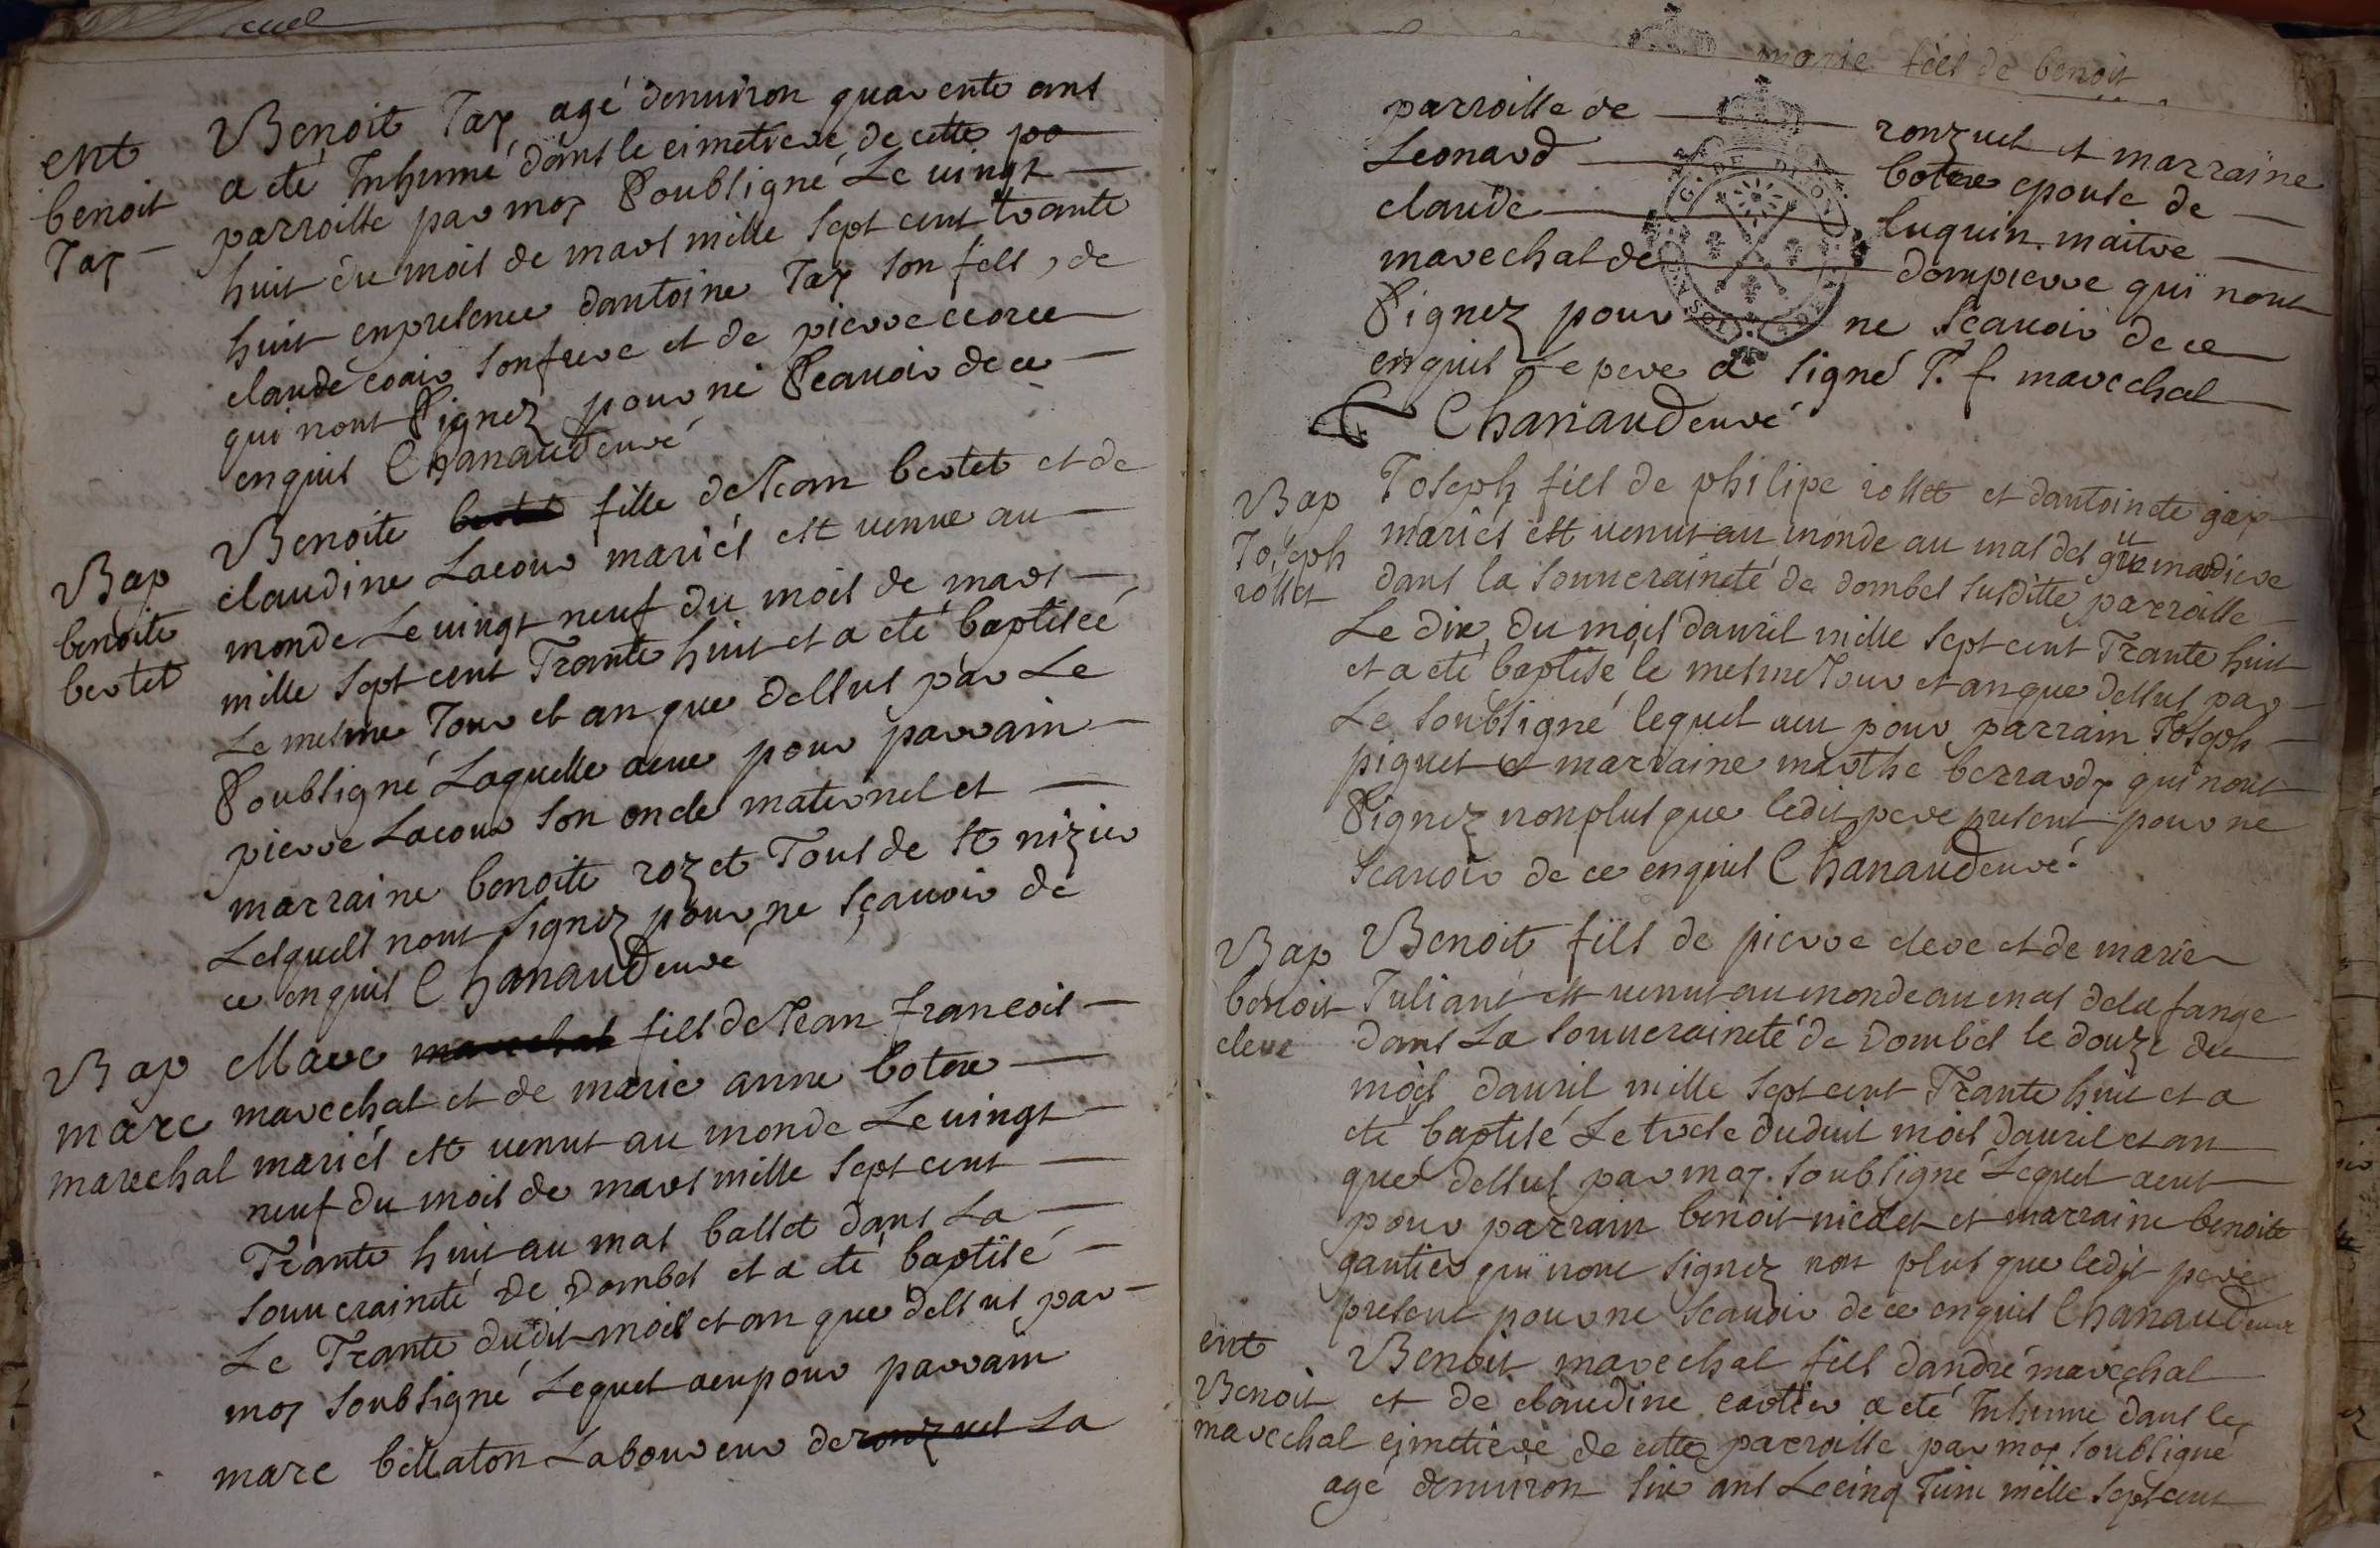 ent
benoit
Tay
Benoit Tay agé denuiron quarente ans
a eté Inhumé dans le cimetiere de cette pa
parroisse par moy Soubsigné Le uingt
huit du mois de mars mille sept cent trante
huit en presence dantoine Tay son fils, de
claude son frere et de pierre
qui nont Signez pour ne Scauoir de ce
enquis Chanaud curé
Bap
benoite
bertet
Benoite fille de Jean bertet et de
claudine Lacour mariés est venue au
monde Le uingt neuf du mois de mars
mille sept cent Trante huit et a eté baptisée
Le mesme Jour et an que dessus par Le
Soubsigné Laquelle a eue pour parrain
pierre Lacour son oncle maternel et
marraine benoite rozet Tous de st nizier
Lesquels nont signez pour ne sçauoir de
ce enquis Chanaud curé
Bap
marc
marechal
Marc marechal fils de Jean francois
marechal et de marie anne
mariés est venut au monde Le uingt
neuf du mois de mars mille sept cent
Trante huit au mas ballet dans La
souueraineté De Dombes et a eté baptisé
Le Trante dudit mois et an que dessus par
moy soubsigné Lequel a eu pour parrain
marc bellaton Laboureur de ronzuel La
marie fils de benoit
parroisse de ronzuel et marraine
Leonard epouse de
claude luquin maitre
marechal de dompierre qui nont
Signez pour ne sçauoir de ce
enquis Le pere a signé J. f marechal
Chanaud curé
Bap
Joseph
rollet
Joseph fils de philipe rollet et dantoinete gay
mariés est venut au monde au mas des
dans la souueraineté de dombes susditte parroisse
Le dix du mois dauril mille sept cent Trante huit
et a eté baptisé le mesme Jour et an que dessus par
Le soubsigné lequel a eu pour parrain Joseph
piquet et marraine marthe berrardy qui nont
Signez non plus que ledit pere present pour ne
Scauoir de ce enquis Chanaud curé
Bap
benoit
clere
Benoit fils de pierre clere et de marie
Juliane est venut au monde au mas de la fange
dans La souueraineté de Dombes le douze du
mois dauril mille sept cent Trante huit et a
eté baptisé Le treze dudit mois dauril et an
que dessus par moy soubsigné Lequel a eut
pour parrain benoit et marraine benoite
gautier qui nont signez non plus que ledit pere
present pour ne scauoir de ce enquis Chanaud curé
ent
Benoit
marechal
Benoit marechal fils dandré marechal
et de claudine cartier a eté Inhumé dans le
cimetiere de cette parroisse par moy soubsigné
agé denuiron six ans Le cinq Juin mille sept cent